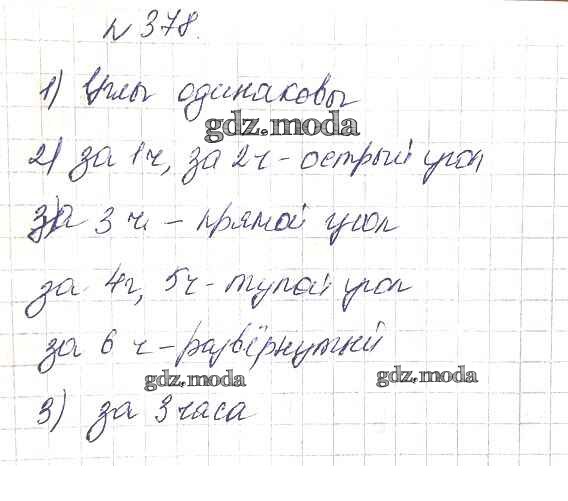 № 378.
1) Углы одинаковы
gdz.moda
2) за 1ч, за 2ч - острый угол
за 3 ч - прямой угол
за 4ч, 5ч - тупой угол
за 6 ч - развёрнутый
gdz.moda gdz.moda
3) за 3 часа